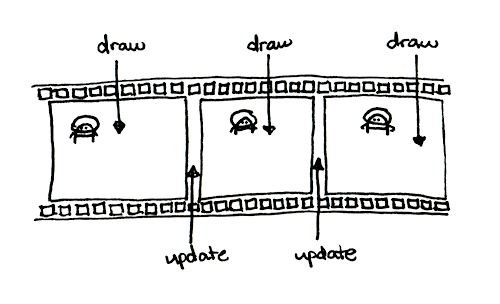 draw
draw
draw
update
update